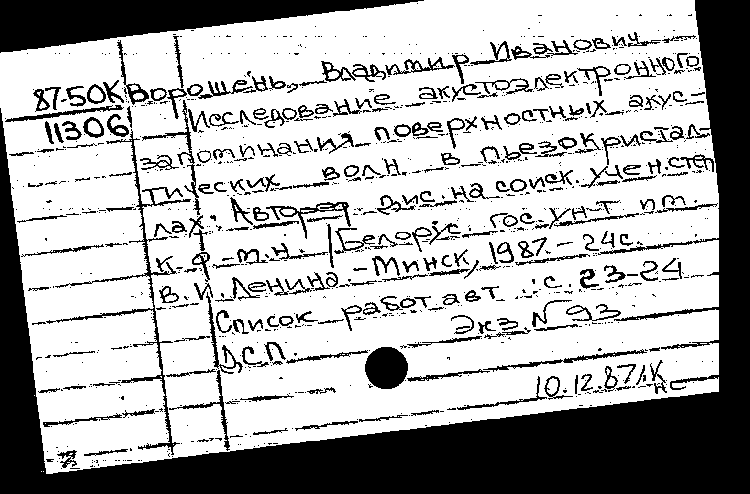 87-50К Ворошень, Владимир Иванович
11306 Исследование акустоэлектронного
запоминания поверхностных акус-
тических волн в пьезокристал-
лах: Автореф. дис. на соиск. учен. степ
к.ф.-м.н. / Белорус. гос. ун-т им.
В.И. Ленина. - Минск, 1987. - 24с.
Список работ авт.: с. 23-24
Экз. N 93
ДСП.
10.12.87